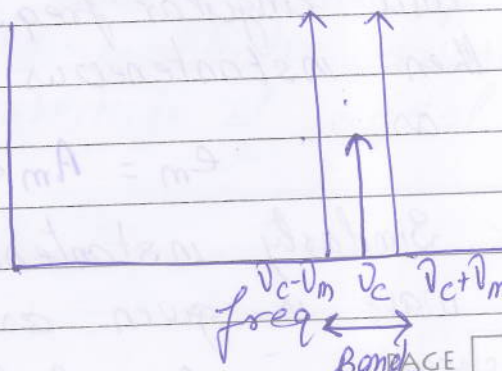 e_m = A_m
ν_c-ν_m ν_c ν_c+ν_m
freq
Band
PAGE